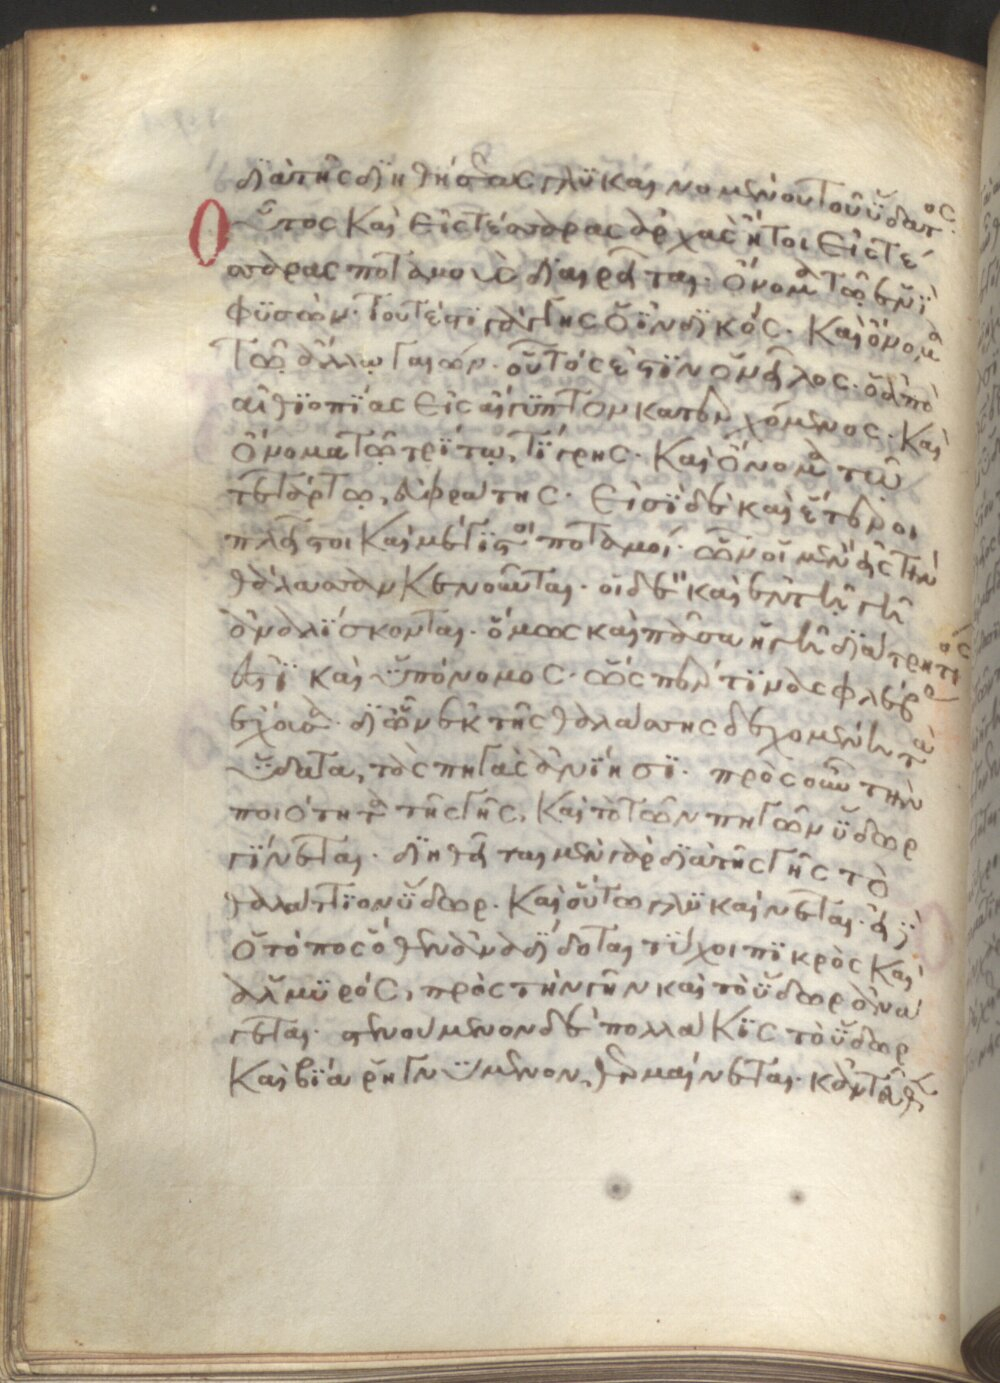 διὰ τῆς διηθήσεως γλυκαινομένου τοῦ ὕδατος.
Οὗτος καὶ εἰς τέσσαρας ἀρχὰς ἤτοι εἰς τέσ
σαρας ποταμοὺς διαιρεῖται. ὄνομα τῷ ἑνῒ
φϋσῶν. τουτέστιν γάγγης ὁ ϊνδϊκός. καὶ ὄνομα
τῷ ἄλλῳ γαιῶν. οὗτός ἐστϊν ὁ νεῖλος. ὁ ἀπὸ
αἰθϊοπΐας εἰς αἴγυπτον κατερχόμενος. καὶ
ὄνομα τῷ τρϊτῳ, τΐγρης. καὶ ὄνομα τῶ
τετάρτῳ, εὐφράτης. εἰσῒ δὲ καὶ ἕτεροι
πλεῖστοι καὶ μέγϊστοι ποταμοί. ὧν οἱ μὲν εἰς τὴν
θάλασσαν κενοῦνται. οἱ δὲ καὶ ἐν τῇ γῇ
ἀναλΐσκονται. ὅμως καὶ πᾶσα ἡ γῆ διάτρητος
ἐστῒ καὶ ὑπόνομος. ὥσπερ τϊνὰς φλέβας
ἔχουσα. δϊ ὧν ἐκ τῆς θαλάσσης δεχομένη τὰ
ὕδατα, τὰς πηγὰς ἀνΐησϊ. πρὸς οὖν τὴν
ποιότητα τῆς γῆς, καὶ τὸ τῶν πηγῶν ὕδωρ
γΐνεται. διηθεῖται μὲν γὰρ διὰ τῆς γῆς τὸ
θαλάττϊον ὕδωρ. καὶ οὕτω γλϋκαίνεται. εἰ δὲ
ὁ τόπος ὅθεν ἀναδΐδοται τύχοι πϊκρὸς καὶ
ἁλμϋρός, πρὸς τὴν γῆν καὶ τὸ ὕδωρ ἀνά
γεται. στενούμενον δὲ πολλάκϊς τὸ ὕδωρ
καὶ βΐα ῥηγνύμενον, θερμαίνεται. κἀντεῦθεν